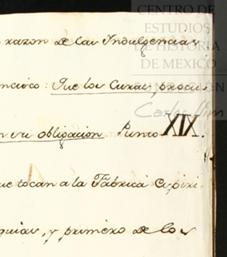 CENTRO DE
ESTUDIOS
DE HISTORIA
DE MEXICO
razon de las Indulgencias
Que los Curas, procu-
su obligacion. Punto XIX.
que tocan a la Fabrica Espiri-
quias, y primero de los